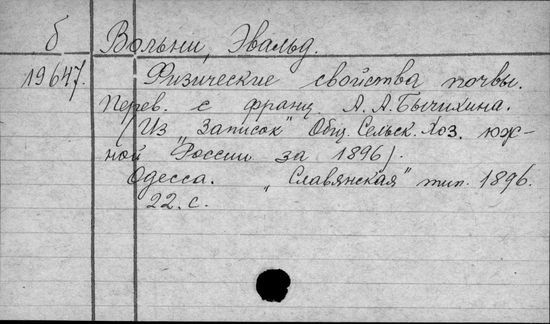 б Вольни, Эвальд.
19647. Физические свойства почвы.
Перев. с франц А. А. Бычихина.
(Из "Записок" Общ. Сельск. Хоз. юж-
ной России за 1896).
Одесса. "Славянская" тип. 1896.
22. с.